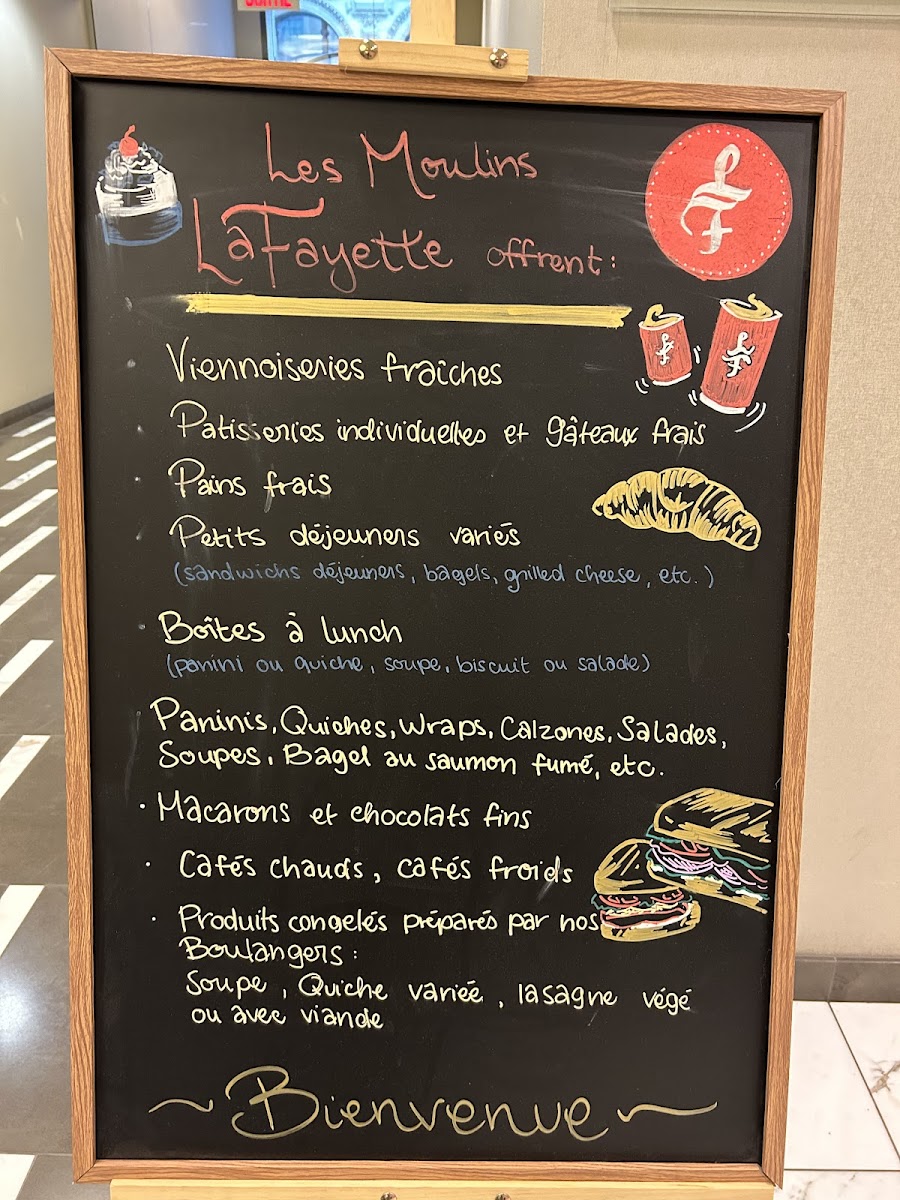 SORTIE
Les Moulins
LaFayette offrent:
LF
LF
LF
· Viennoiseries fraîches
· Patisseries individuelles et gâteaux frais
· Pains frais
Petits déjeuners variés
(sandwichs déjeuners, bagels, grilled cheese, etc.)
· Boîtes à lunch
(panini ou quiche, soupe, biscuit ou salade)
Paninis, Quiches, Wraps, Calzones, Salades,
Soupes, Bagel au saumon fumé, etc.
· Macarons et chocolats fins
· Cafés chauds, cafés froids
· Produits congelés préparés par nos
Boulangers:
Soupe, Quiche variée, lasagne végé
ou avec viande
~Bienvenue~